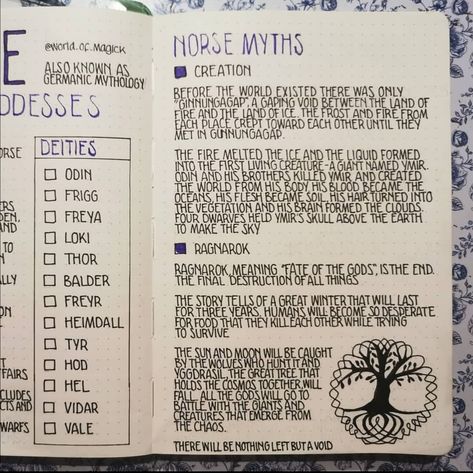 E
@World.of.Magick
ALSO KNOWN AS
GERMANIC MYTHOLOGY
DDESSES
DEITIES
ODIN
FRIGG
FREYA
LOKI
THOR
BALDER
FREYR
HEIMDALL
TYR
HOD
HEL
VIDAR
VALE
ORSE
RS
DEN,
AND
TO
ALLY
FFAIRS
CLUDES
CTS AND
WARFS
NORSE MYTHS
CREATION
BEFORE THE WORLD EXISTED THERE WAS ONLY
"GINNUNGAGAP", A GAPING VOID BETWEEN THE LAND OF
FIRE AND THE LAND OF ICE. THE FROST AND FIRE FROM
EACH PLACE CREPT TOWARD EACH OTHER UNTIL THEY
MET IN GUNNUNGAGAP.
THE FIRE MELTED THE ICE AND THE LIQUID FORMED
INTO THE FIRST LIVING CREATURE - A GIANT NAMED YMIR.
ODIN AND HIS BROTHERS KILLED YMIR AND CREATED
THE WORLD FROM HIS BODY. HIS BLOOD BECAME THE
OCEANS, HIS FLESH BECAME SOIL, HIS HAIR TURNED INTO
THE VEGETATION AND HIS BRAIN FORMED THE CLOUDS.
FOUR DWARVES HELD YMIR'S SKULL ABOVE THE EARTH
TO MAKE THE SKY
RAGNAROK
RAGNAROK, MEANING "FATE OF THE GODS", IS THE END.
THE FINAL DESTRUCTION OF ALL THINGS
THE STORY TELLS OF A GREAT WINTER THAT WILL LAST
FOR THREE YEARS. HUMANS WILL BECOME SO DESPERATE
FOR FOOD THAT THEY KILL EACH OTHER WHILE TRYING
TO SURVIVE
THE SUN AND MOON WILL BE CAUGHT
BY THE WOLVES WHO HUNT IT AND
YGGDRASIL, THE GREAT TREE THAT
HOLDS THE COSMOS TOGETHER, WILL
FALL. ALL THE GODS WILL GO TO
BATTLE WITH THE GIANTS AND
CREATURES THAT EMERGE FROM
THE CHAOS.
THERE WILL BE NOTHING LEFT BUT A VOID